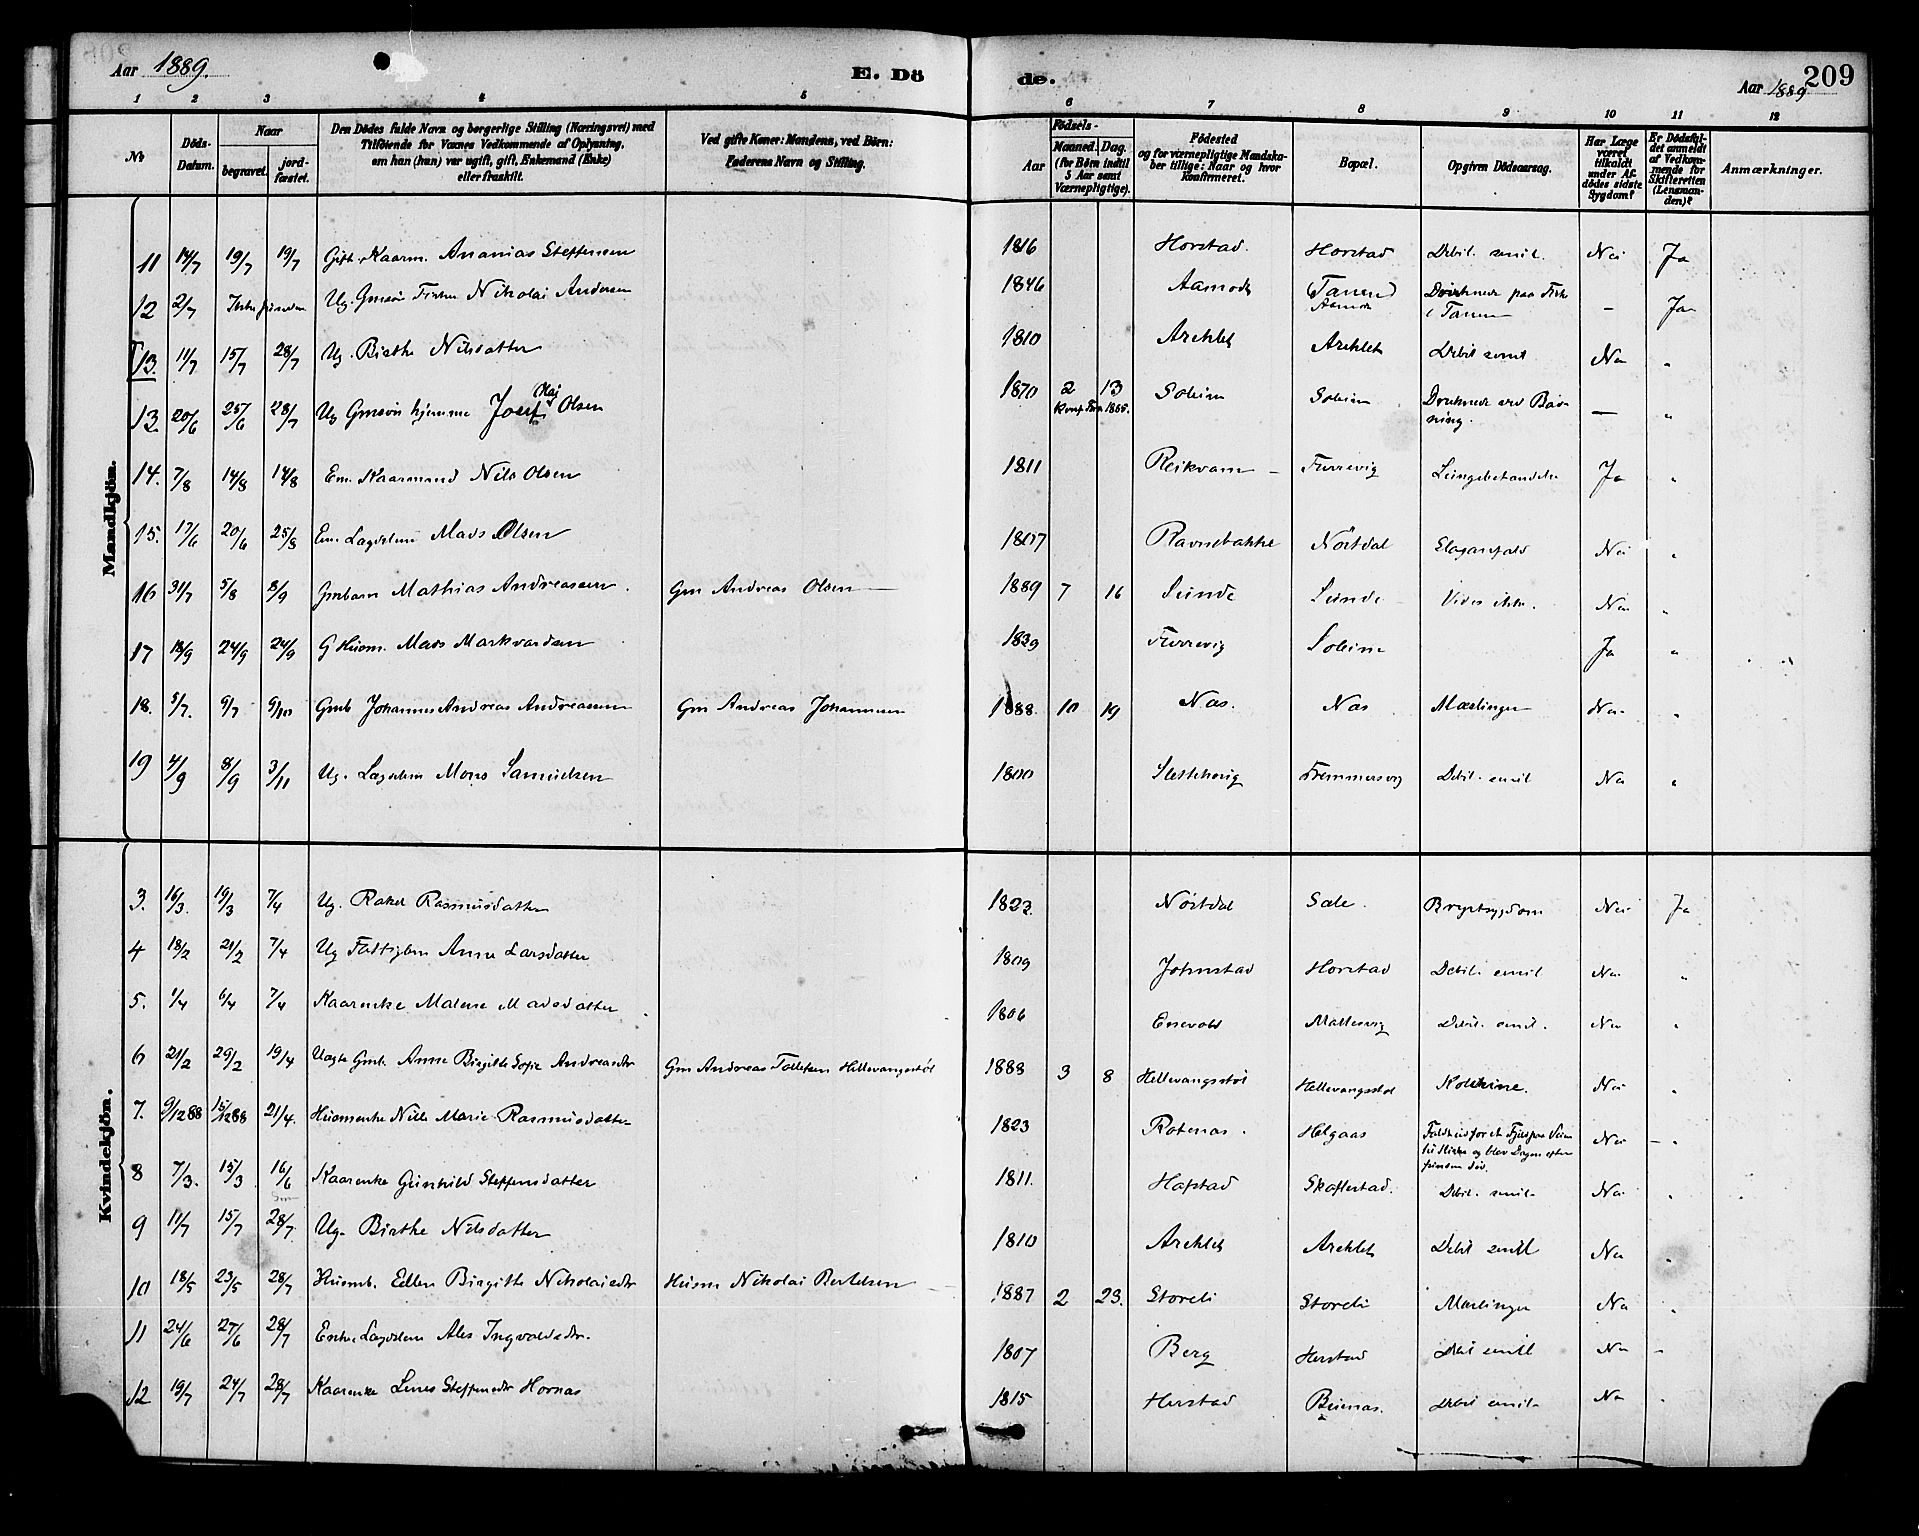 Aar 1889.
E. Dö
de.
Aar 1889
209
1 2 3 4 5 6 7 8 9 10 11 12
No
Döds-Datum.
Naar
begravet.
jordfæstet.
Den Dödes fulde Navn og borgerlige Stilling (Næringsvei) med
Tilföiende for Voxnes Vedkommende af Oplysning,
om han (hun) var ugift, gift, Enkemand (Enke)
eller fraskilt.
Ved gifte Koner: Mandens, ved Börn:
Faderens Navn og Stilling.
Födsels-
Aar
Maaned. Dag.
(for Börn indtil
5 Aar samt
Værnepligtige).
Födested
og for værnepligtige Mandska-
ber tillige: Naar og hvor
konfirmeret.
Bopæl.
Opgiven Dödsaarsag.
Har Læge
været
tilkaldt
under Af-
dödes sidste
Sygdom?
Er Dödsfal-
det anmeldt
af Vedkom-
mende for
Skifteretten
(Lensman-
den)?
Anmærkninger.
Mandkjön.
11 14/7 19/7 19/7 Gift. Kaarm. Ananias Steffensen 1816 Horstad. Horstad Debil. senil. Nei Ja
12 2/7 Ug. Gmsøn Nikolai Andersen 1846 Aamodt (Tanen) Aamodt Druknede paa i Tanen – Ja
13. 11/7 15/7 28/7 Ug. Birthe Nilsdatter 1810 Arehlet Arehlet Debil senil Nei "
13. 20/6 25/6 28/7 Ug Gmsøn hjemme Josef Olaj Olsen 1870 2 13 Soleim Soleim Druknede ved Bad-
ning. — "
14. 7/8 14/8 14/8 Em. Kaarmand Nils Olsen 1811 Reikvam – Furrevig Lungebetændelse Ja "
15. 17/6 20/6 25/8 Em. Mads Olsen 1807 Ravnebakke Nöstdal Slaganfald Nei "
16 31/7 5/8 8/9 Gmbarn Mathias Andreassen. Gm Andreas Olsen 1889 7 16 Sunde Sunde Vides ikke. Nei "
17 18/9 24/9 24/9 G Husm. Mads Markvardsen 1839 Furrevig Soleim Ja "
18. 5/7. 9/7 9/10 Gmb Johannes Andreas Andreassen Gm Andreas Johannesen 1888. 10 19 Nas. Nas Mæslinger Nei "
19 4/9 8/9 3/11 Ug. Mons Samuelsen 1800 Fremmersvig Debil. senil Nei "
Kvindekjön.
3. 16/3. 19/3 7/4 Ug. Rakel Rasmusdatter 1823. Nöstdal Sæle. Brystsygdom Nei Ja
4 18/2 21/2 7/4 Ug Fattiglem Anne Larsdatter 1809 Johnstad Horstad Debil. senil Nei "
5. 1/4 6/4 7/4 Kaarenke Malene Madsdatter 1806 Ensevold Mattesvig Debil. senil. Nei "
6 21/2 29/2 19/4 Gmb. Anne Birgitte Sofie Andreasdtr Gm Andreas Tollefsen Hellevangsstöl 1888 3 8 Hellevangsstöl Hellevangsstöl Kolerine. Nei "
7. 9/12 88 15/12 88 21/4. Husmenke Nille Marie Rasmusdatter 1823 Rotenas. Helgaas Nei – "
8 7/3. 15/3 16/6 Kaarenke Gunhild Steffensdatter 1811. Hafstad Skaftestad. Debil. senil Nei "
9 11/7 15/7 28/7. Ug. Birthe Nilsdatter 1810 Arehlet Arehlet Debil senil Nei "
10 18/5 23/5 28/7 Husmb. Ellen Birgitte Nikolaisdtr Husm Nikolai Bertelsen 1887 2 23. Storeli Storeli Mæslinger Nei "
11 24/6 27/6 28/7 Enke Ales Ingvaldsdtr. 1807 Berg Horstad Debil senil Nei –
12 19/7 24/7 28/7 Kaarenke Lines Steffensdtr Hornas 1815 Horstad Debil senil Nei "